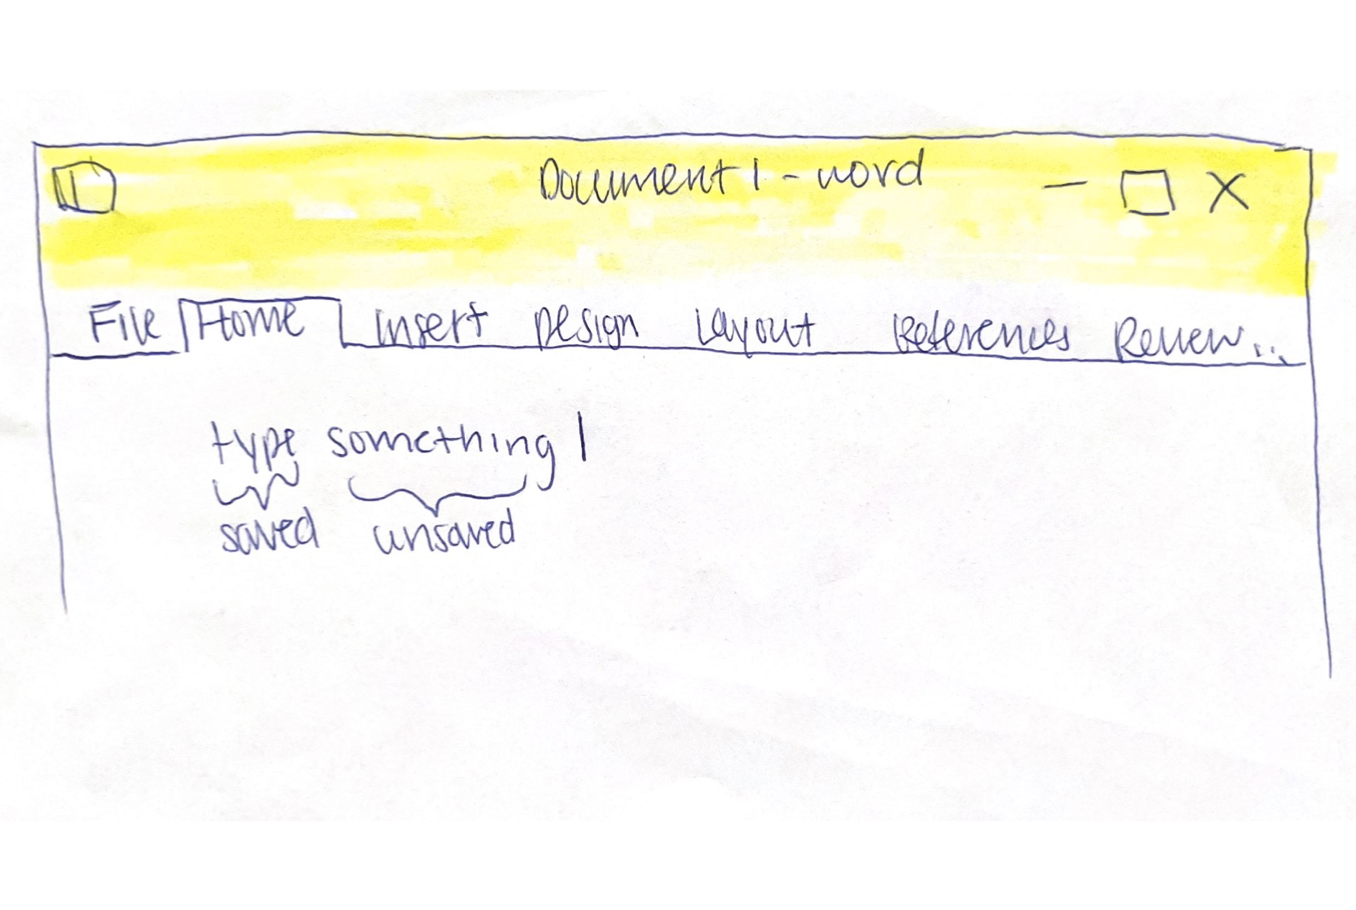 Document 1 - word
File Home Insert Design Layout References Review...
type something
saved unsaved